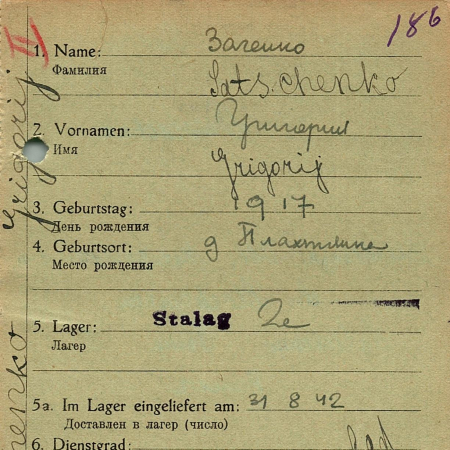 186
II
1. Name: Заченко
Фамилия Satschenko
2. Vornamen: Григорий
Имя Grigorij
3. Geburtstag: 1917
День рождения
4. Geburtsort: д
Место рождения
5. Lager: Stalag 2e
Лагер
5a. Im Lager eingeliefert am: 31 8 42
Доставлен в лагер (число)
6. Dienstgrad:
Grigorij